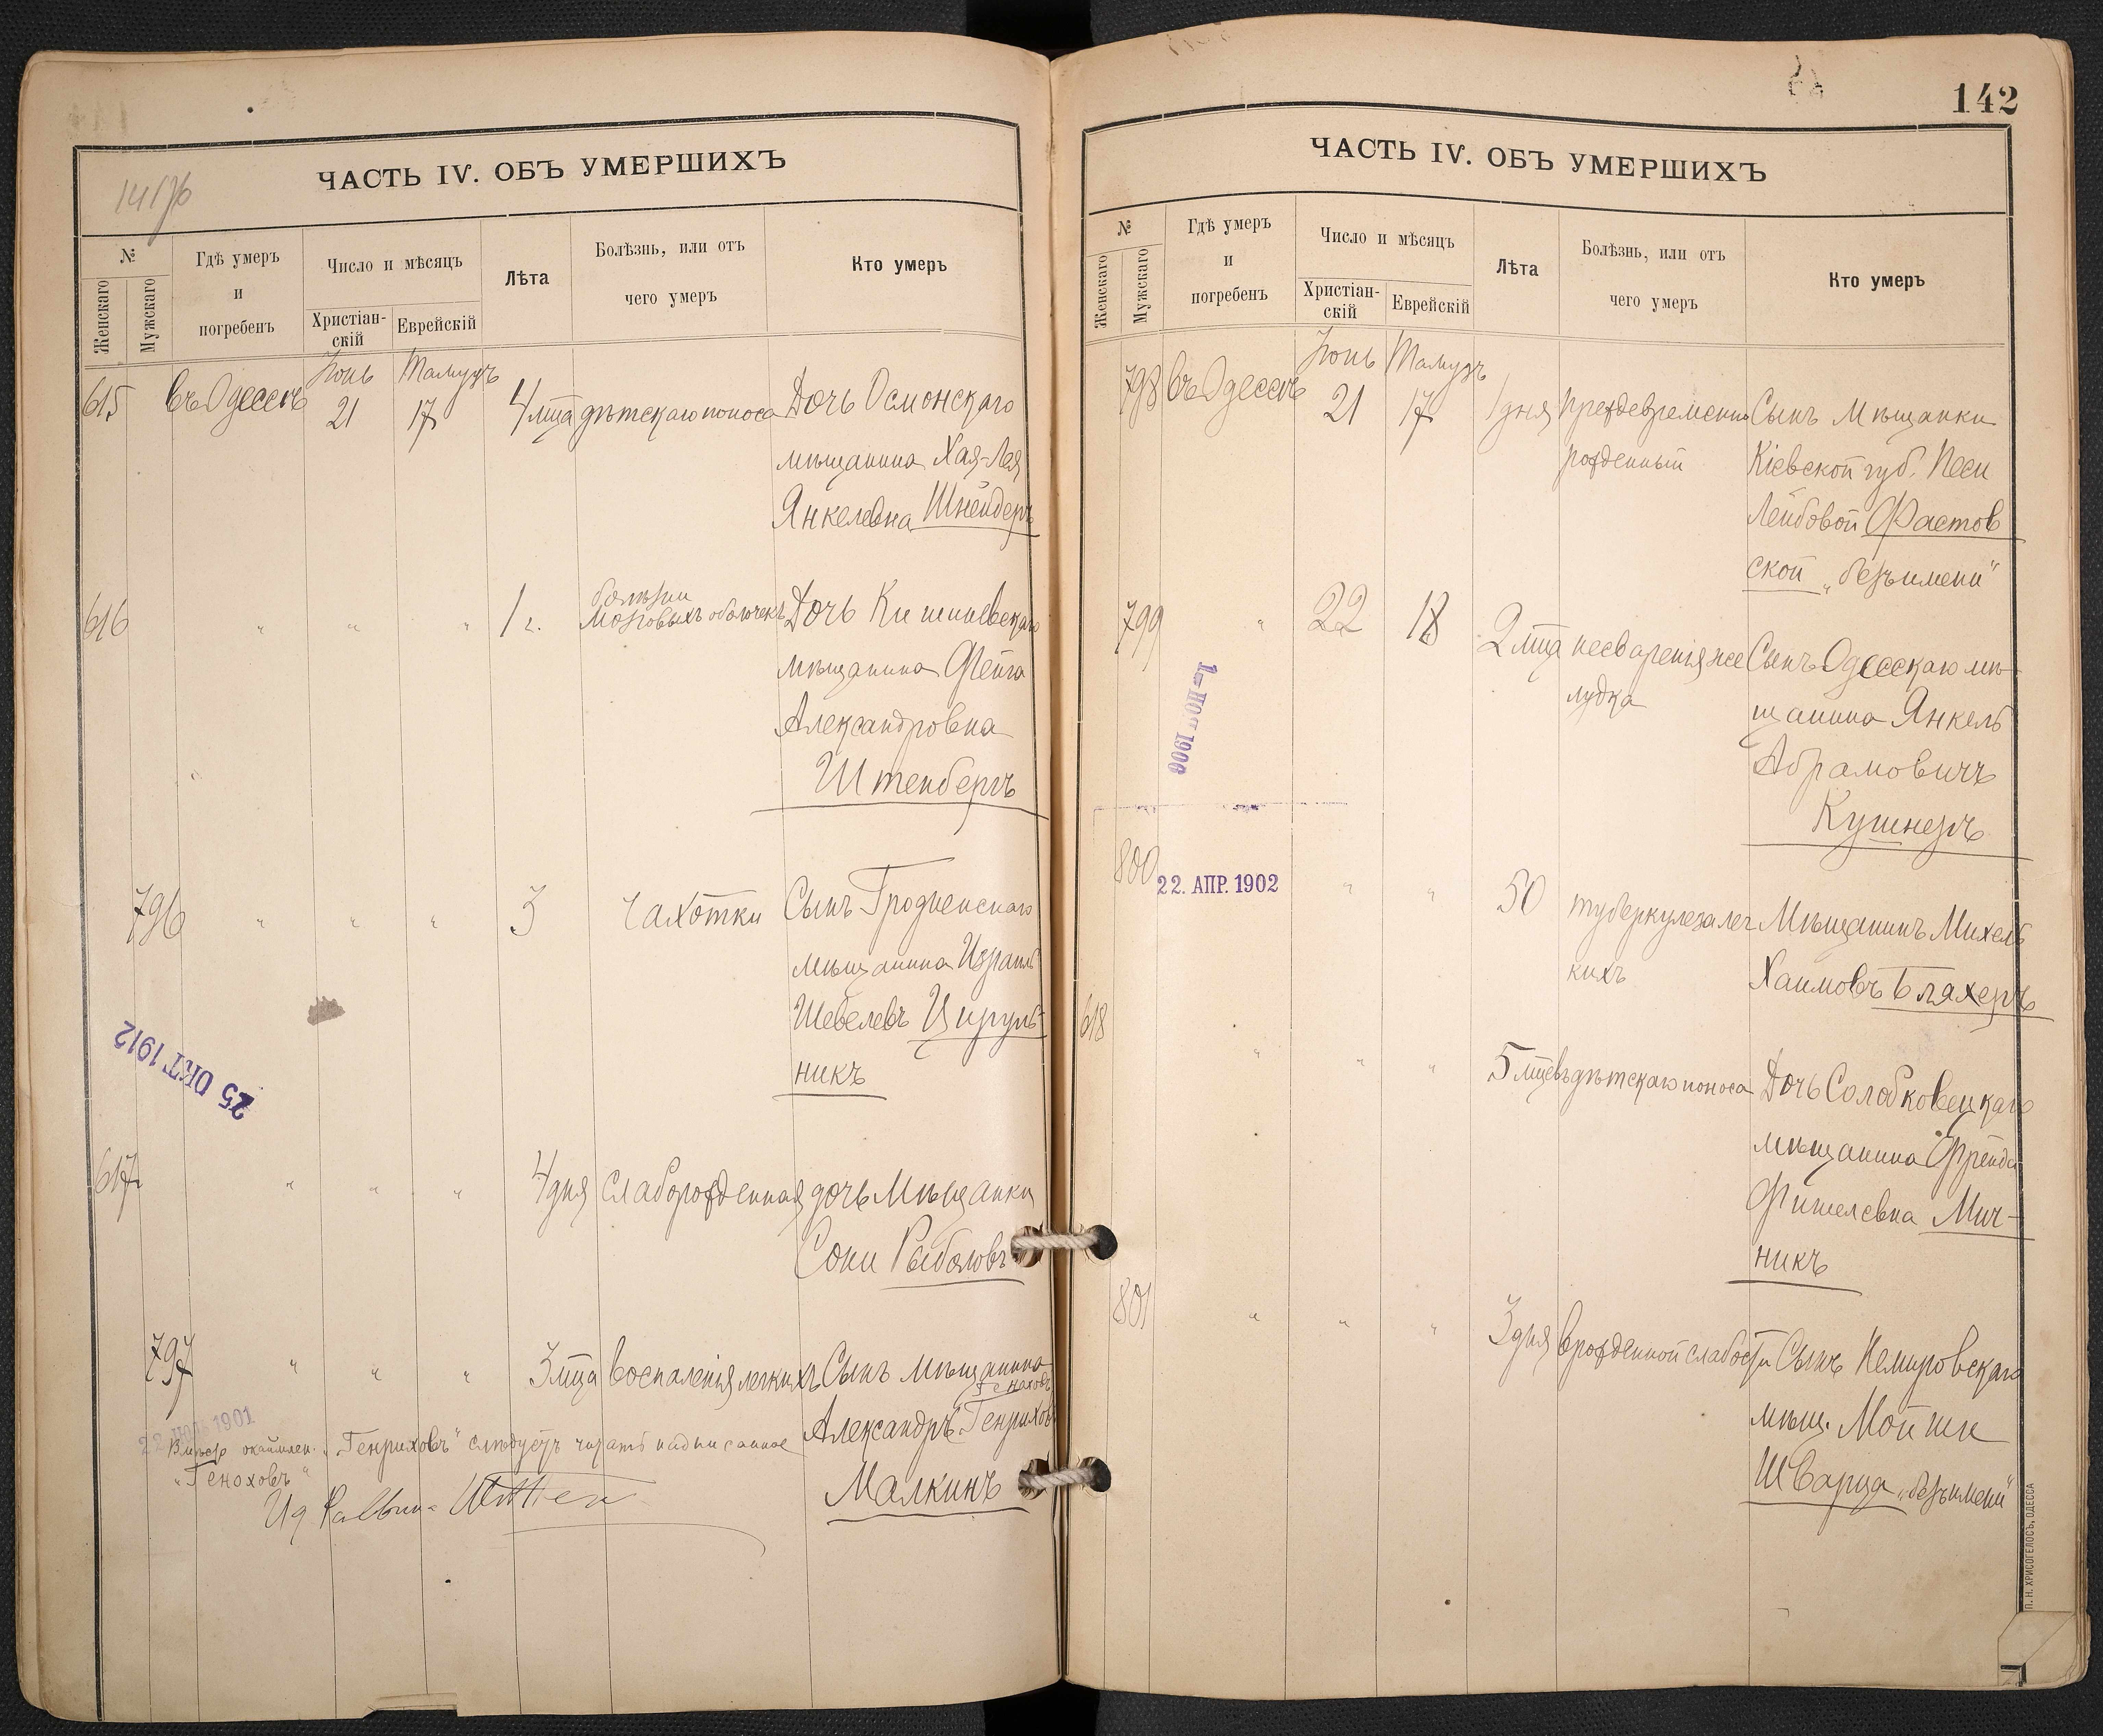 ЧАСТЬ IV. ОБЪ УМЕРШИХЪ
№
Женскаго
Мужскаго
Гдѣ умеръ
и
погребенъ
Число и мѣсяцъ
Христіан-
скій
Еврейскій
Лѣта
Болѣзнь, или отъ
чего умеръ
Кто умеръ
615 въ Одессѣ Іюнь 21 Тамузъ 17 4 мца дѣтскаго поноса Дочь Осмонскаго
мѣщанина Хая-Лея
Янкелевна Шнейдеръ
616 " " " 1 г. болѣзни
мозговыхъ оболочекъ Дочь Кишиневскаго
мѣщанина Фейга
Александровна
Штенбергъ
796 " " " 3 Чахотки Сынъ Гродненскаго
мѣщанина Израиль
Шевелевъ Цируль-
никъ
25 ОКТ 1912
617 " " " 4 дня слаборожденная дочь Мѣщанки
Сони Рыболовъ
797 " " " 3 мца воспаленія легкихъ Сынъ мѣщанина
Геноховъ
Александръ Генриховъ
Малкинъ
1901
Вмѣсто "Генриховъ" слѣдуетъ читать надписанное
"Геноховъ"
142
ЧАСТЬ IV. ОБЪ УМЕРШИХЪ
№
Женскаго
Мужскаго
Гдѣ умеръ
и
погребенъ
Число и мѣсяцъ
Христіан-
скій
Еврейскій
Лѣта
Болѣзнь, или отъ
чего умеръ
Кто умеръ
798 въ Одессѣ Іюнь 21 Тамузъ 17 1 дня преждевременно Сынъ Мѣщанки
рожденный Кіевской губ. Песи
Лейбовой Фастов
ской „безъ имени"
799 " 22 18 2 мца несваренія же Сынъ Одесскаго мѣ-
лудка щанина Янкель
Абрамовичъ
Кушнеръ
1900
800 22. АПР. 1902 " " 50 туберкулеза лег Мѣщанинъ Михель
кихъ Хаимовъ Бляхеръ
618 " " " 5 мцевъ дѣтскаго поноса Дочь Солобковецкаго
мѣщанина Фрейда
Фишелевна Мич-
никъ
801 " " " 3 дня врожденной слабости Сынъ Немировскаго
мѣщ. Мойши
Шварца „безъ имени"
П. Н. ХРИСОГЕЛОСЪ, ОДЕССА